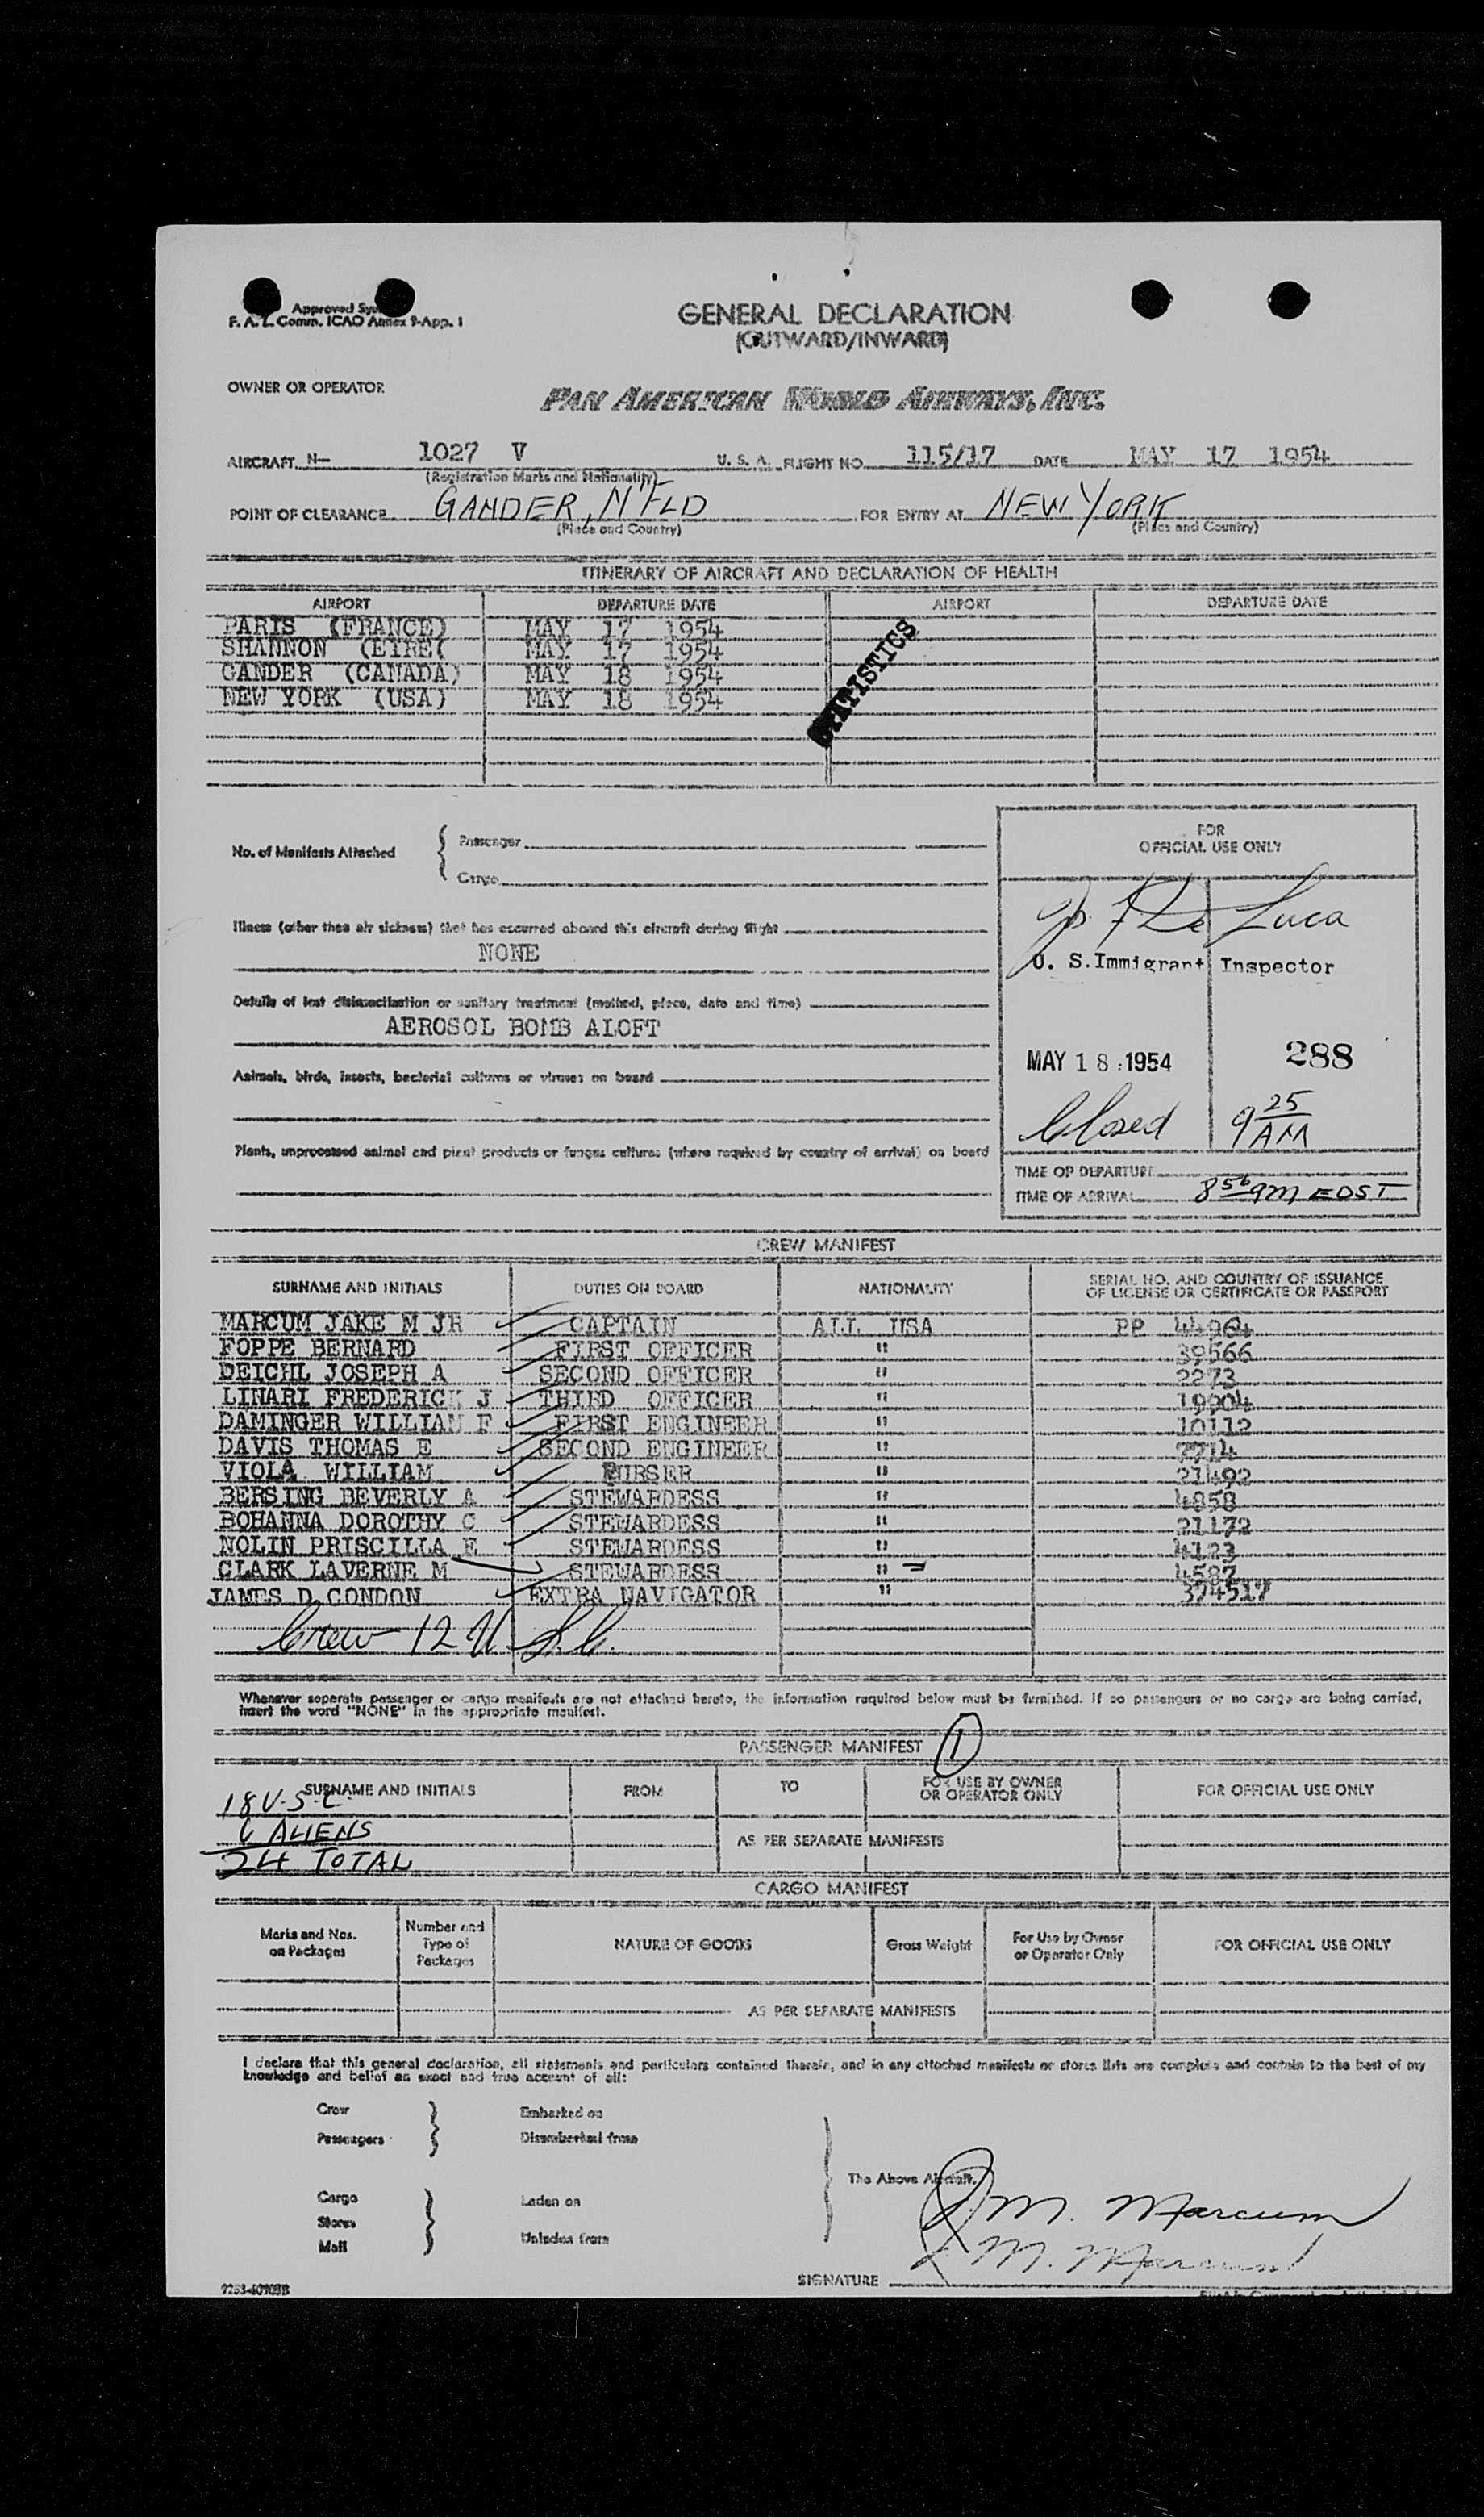 Approved
F. A. L. Comm. ICAO Annex 9-App. 1
GENERAL DECLARATION
(OUTWARD/INWARD)
OWNER OR OPERATOR
PAN AMERICAN WORLD AIRWAYS, INC.
AIRCRAFT N- 1027 V U. S. A. FLIGHT NO. 115/17 DATE MAY 17 1954
(Registration Marks and Nationality)
POINT OF CLEARANCE GANDER, N'FLD FOR ENTRY AT NEW YORK
(Place and Country) (Place and Country)
ITINERARY OF AIRCRAFT AND DECLARATION OF HEALTH
AIRPORT DEPARTURE DATE AIRPORT DEPARTURE DATE
PARIS (FRANCE) MAY 17 1954
SHANNON (EIRE( MAY 17 1954
GANDER (CANADA) MAY 18 1954
NEW YORK (USA) MAY 18 1954
STATISTICS
No. of Manifests Attached { Passenger
Cargo
FOR
OFFICIAL USE ONLY
Illness (other than air sickness) that has occurred aboard this aircraft during flight
NONE
De Luca
U. S. Immigrant Inspector
Details of last disinsectization or sanitary treatment (method, place, date and time)
AEROSOL BOMB ALOFT
Animals, birds, insects, bacterial cultures or viruses on board
MAY 18 1954 288
Closed 9 25 AM
Plants, unprocessed animal and plant products or fungus cultures (where required by country of arrival) on board
TIME OF DEPARTURE
TIME OF ARRIVAL 8 56 am EDST
CREW MANIFEST
SURNAME AND INITIALS DUTIES ON BOARD NATIONALITY SERIAL NO. AND COUNTRY OF ISSUANCE
OF LICENSE OR CERTIFICATE OR PASSPORT
MARCUM JAKE M JR CAPTAIN ALL USA PP 44964
FOPPE BERNARD FIRST OFFICER " 39566
DEICHL JOSEPH A SECOND OFFICER " 2273
LINARI FREDERICK J THIRD OFFICER " 19904
DAMINGER WILLIAM F FIRST ENGINEER " 10112
DAVIS THOMAS E SECOND ENGINEER " 7714
VIOLA WILLIAM PURSER " 21492
BERSING BEVERLY A STEWARDESS " 4858
BOHANNA DOROTHY C STEWARDESS " 21172
NOLIN PRISCILLA E STEWARDESS " 4123
CLARK LAVERNE M STEWARDESS " 4587
JAMES D. CONDON EXTRA NAVIGATOR " 374517
Crew 12 U.S.C.
Whenever seperate passenger or cargo manifests are not attached hereto, the information required below must be furnished. If no passengers or no cargo are being carried,
insert the word "NONE" in the appropriate manifest.
PASSENGER MANIFEST 1
SURNAME AND INITIALS FROM TO FOR USE BY OWNER
OR OPERATOR ONLY FOR OFFICIAL USE ONLY
18 U.S.C.
6 ALIENS AS PER SEPARATE MANIFESTS
24 TOTAL
CARGO MANIFEST
Marks and Nos.
on Packages Number and
Type of
Packages NATURE OF GOODS Gross Weight For Use by Owner
or Operator Only FOR OFFICIAL USE ONLY
AS PER SEPARATE MANIFESTS
I declare that this general declaration, all statements and particulars contained therein, and in any attached manifests or stores lists are complete and contain to the best of my
knowledge and belief an exact and true account of all:
Crew Embarked on
Passengers Disembarked from
The Above Aircraft.
Cargo Laden on
Stores
Mail Unladen from
J M. Marcum
J M. Marcum
SIGNATURE